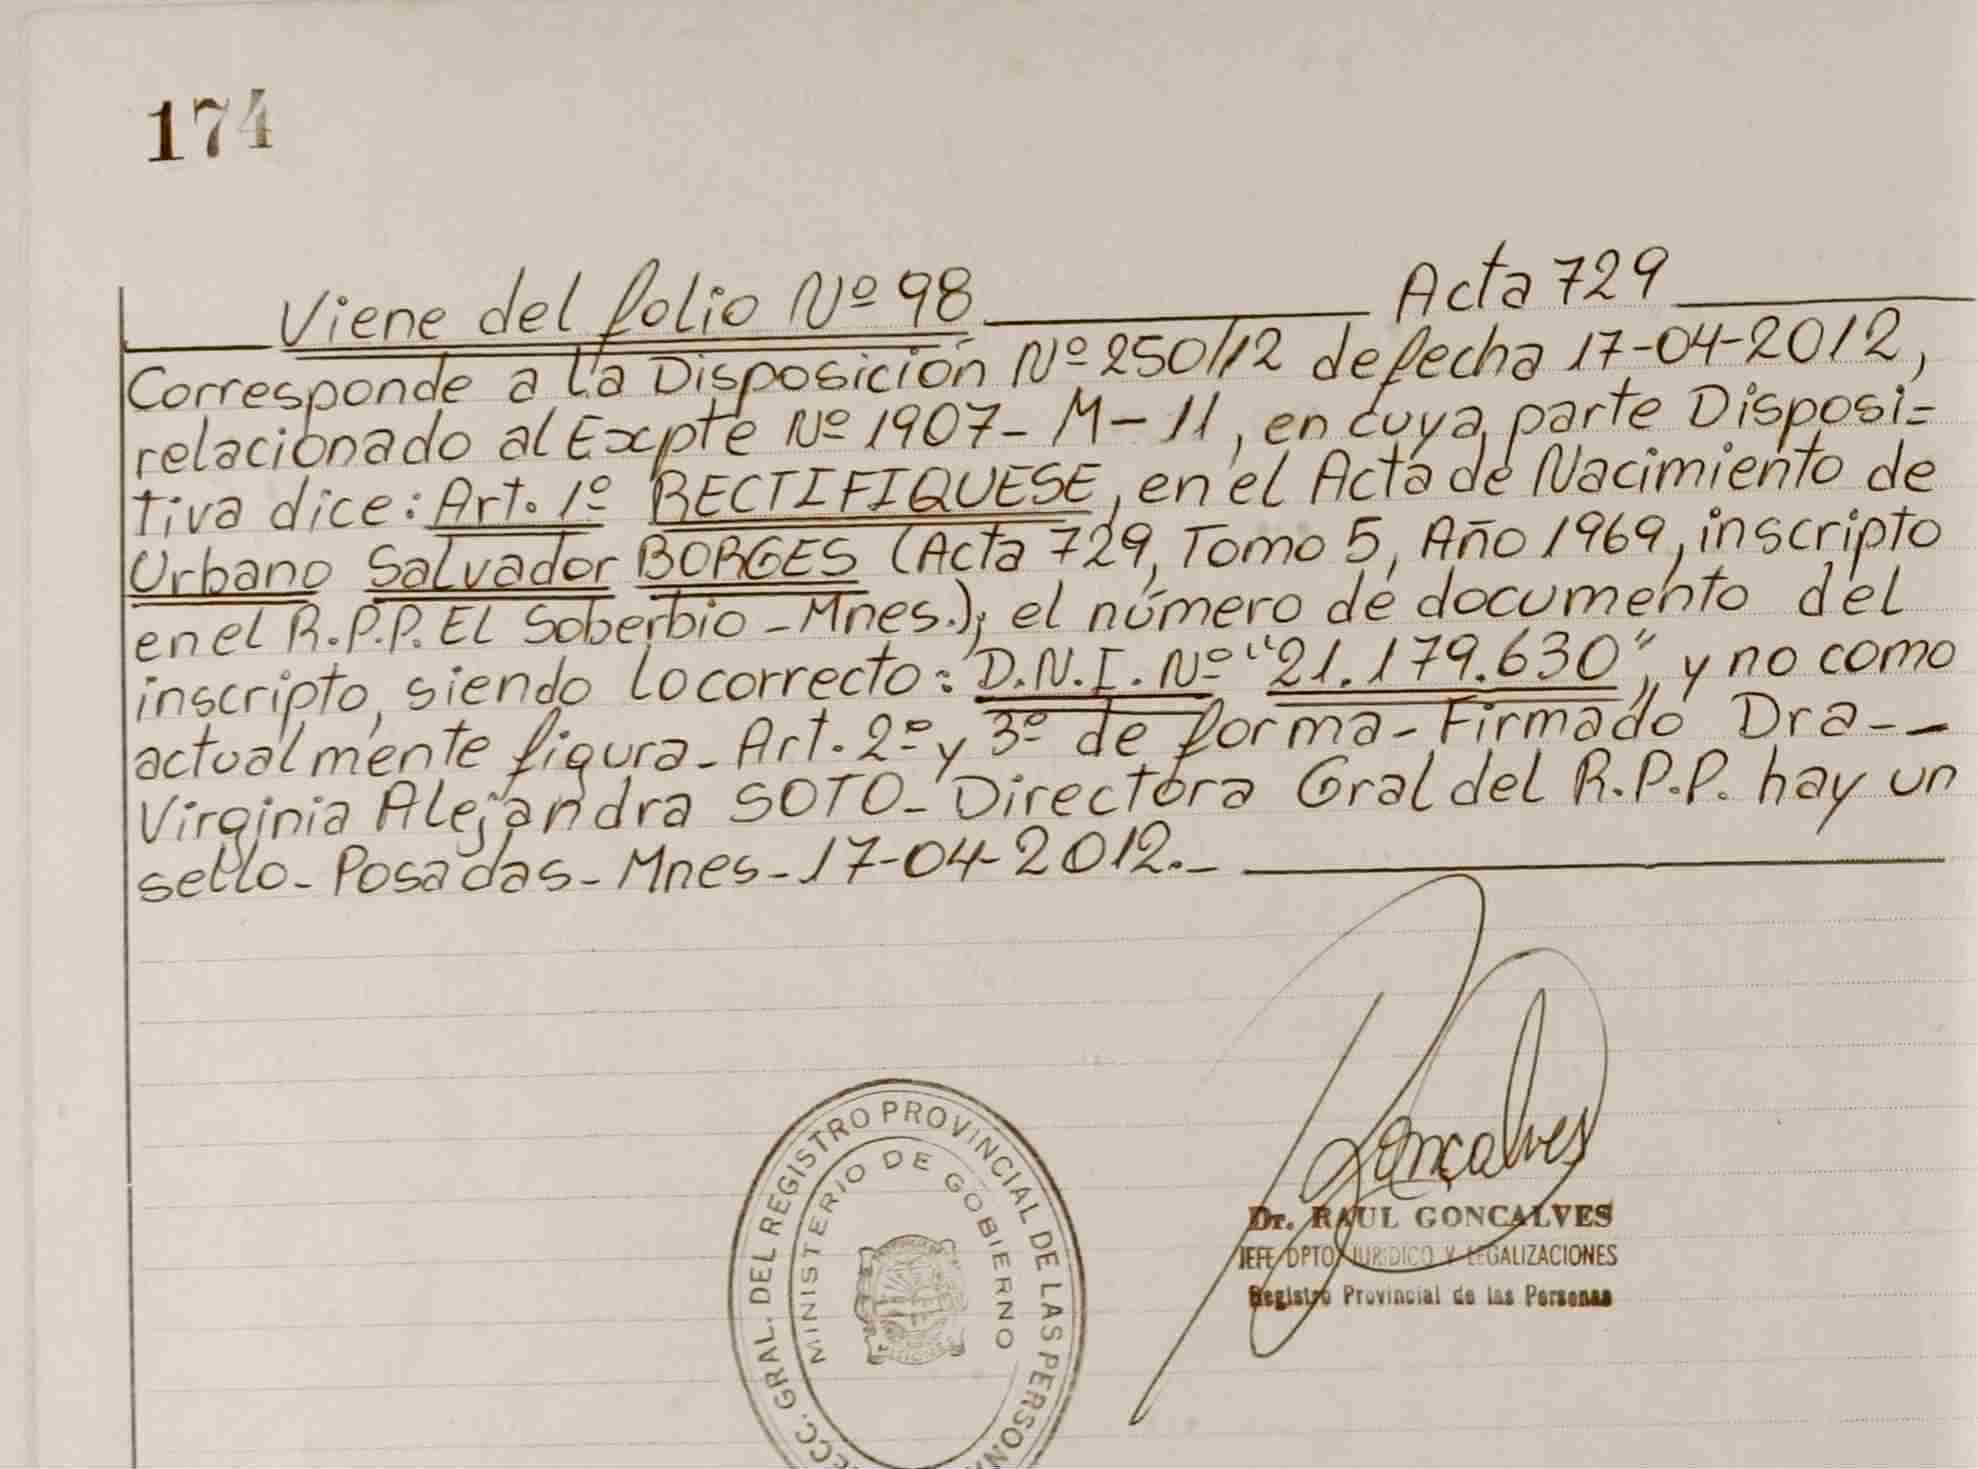 174
Viene del folio Nº 98 Acta 729
Corresponde a la Disposición Nº 250/12 de fecha 17-04-2012,
relacionado al Expte Nº 1907- M- 11, en cuya parte Disposi=
tiva dice: Art. 1º RECTIFIQUESE, en el Acta de Nacimiento de
Urbano Salvador BORGES (Acta 729, Tomo 5, Año 1969, inscripto
en el R.P.P. El Soberbio - Mnes.); el número de documento del
inscripto, siendo lo correcto: D.N.I. Nº "21.179.630", y no como
actualmente figura- Art. 2º y 3º de forma- Firmado Dra--
Virginia Alejandra SOTO- Directora Gral del R.P.P. hay un
sello- Posadas- Mnes- 17-04-2012.-
Goncalves
Dr. RAUL GONCALVES
JEFE DPTO. JURIDICO Y LEGALIZACIONES
Registro Provincial de las Personas
GRAL. DEL REGISTRO PROVINCIAL DE LAS
MINISTERIO DE GOBIERNO